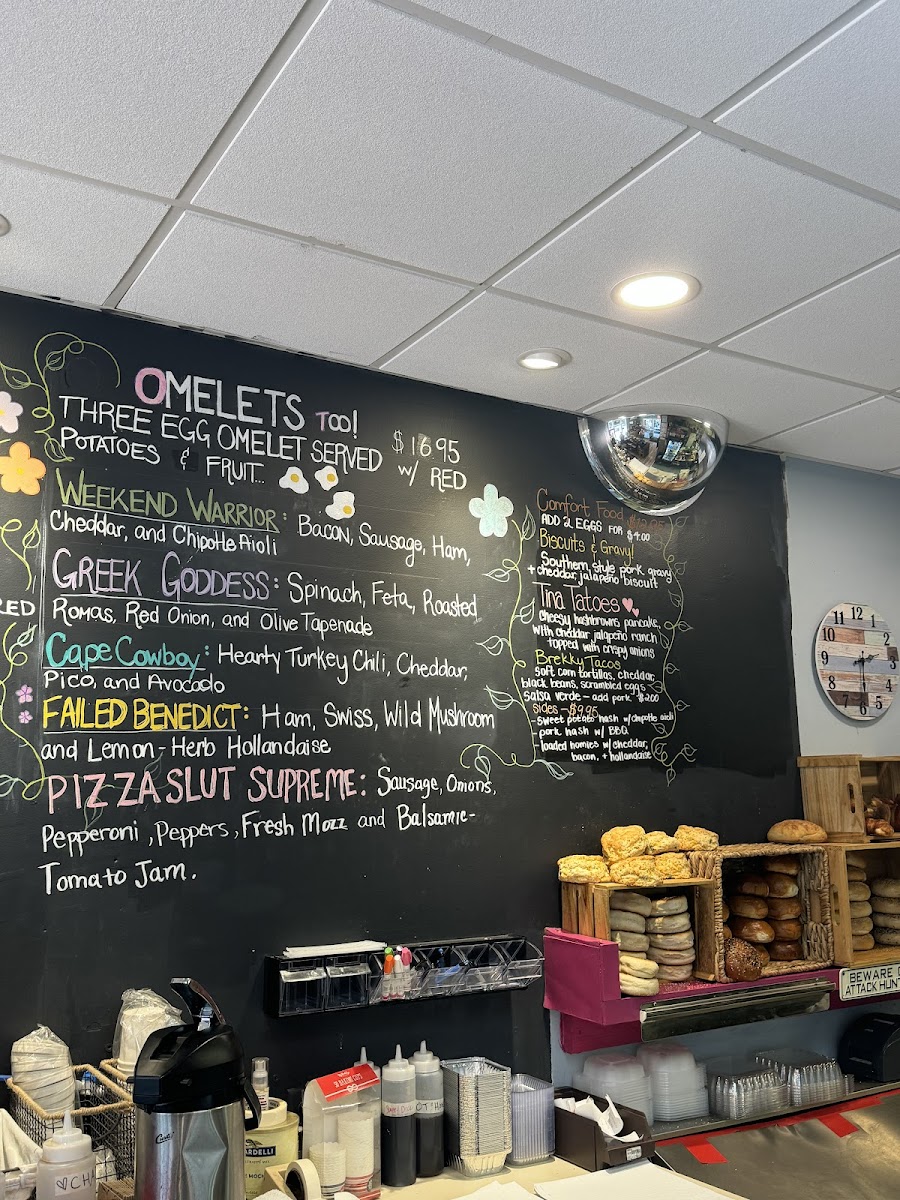 OMELETS TOO!
THREE EGG OMELET SERVED
$16.95
w/ RED
POTATOES & FRUIT...
WEEKEND WARRIOR: Bacon, Sausage, Ham,
Cheddar, and Chipotle Aioli
GREEK GODDESS: Spinach, Feta, Roasted
Romas, Red Onion, and Olive Tapenade
Cape Cowboy: Hearty Turkey Chili, Cheddar,
Pico, and Avocado
FAILED BENEDICT: Ham, Swiss, Wild Mushroom
and Lemon-Herb Hollandaise
PIZZA SLUT SUPREME: Sausage, Onions,
Pepperoni, Peppers, Fresh Mozz and Balsamic-
Tomato Jam.
RED
Comfort Food
ADD 2 EGGS FOR $4.00
Biscuits & Gravy!
Southern style pork gravy
+ cheddar jalapeño biscuit
Tina Tatoes
Cheesy hashbrowns pancake,
with cheddar jalapeño ranch
topped with crispy onions
Brekky Tacos
soft corn tortillas, cheddar,
black beans, scrambled eggs,
salsa verde - add pork $2.00
sides - $9.95
-sweet potato hash w/chipotle aioli
-pork hash w/ BBQ
-loaded homies w/cheddar,
bacon, + hollandaise
11 12 1
10 2
9 3
8 4
7 6 5
BEWARE
ATTACK HUN